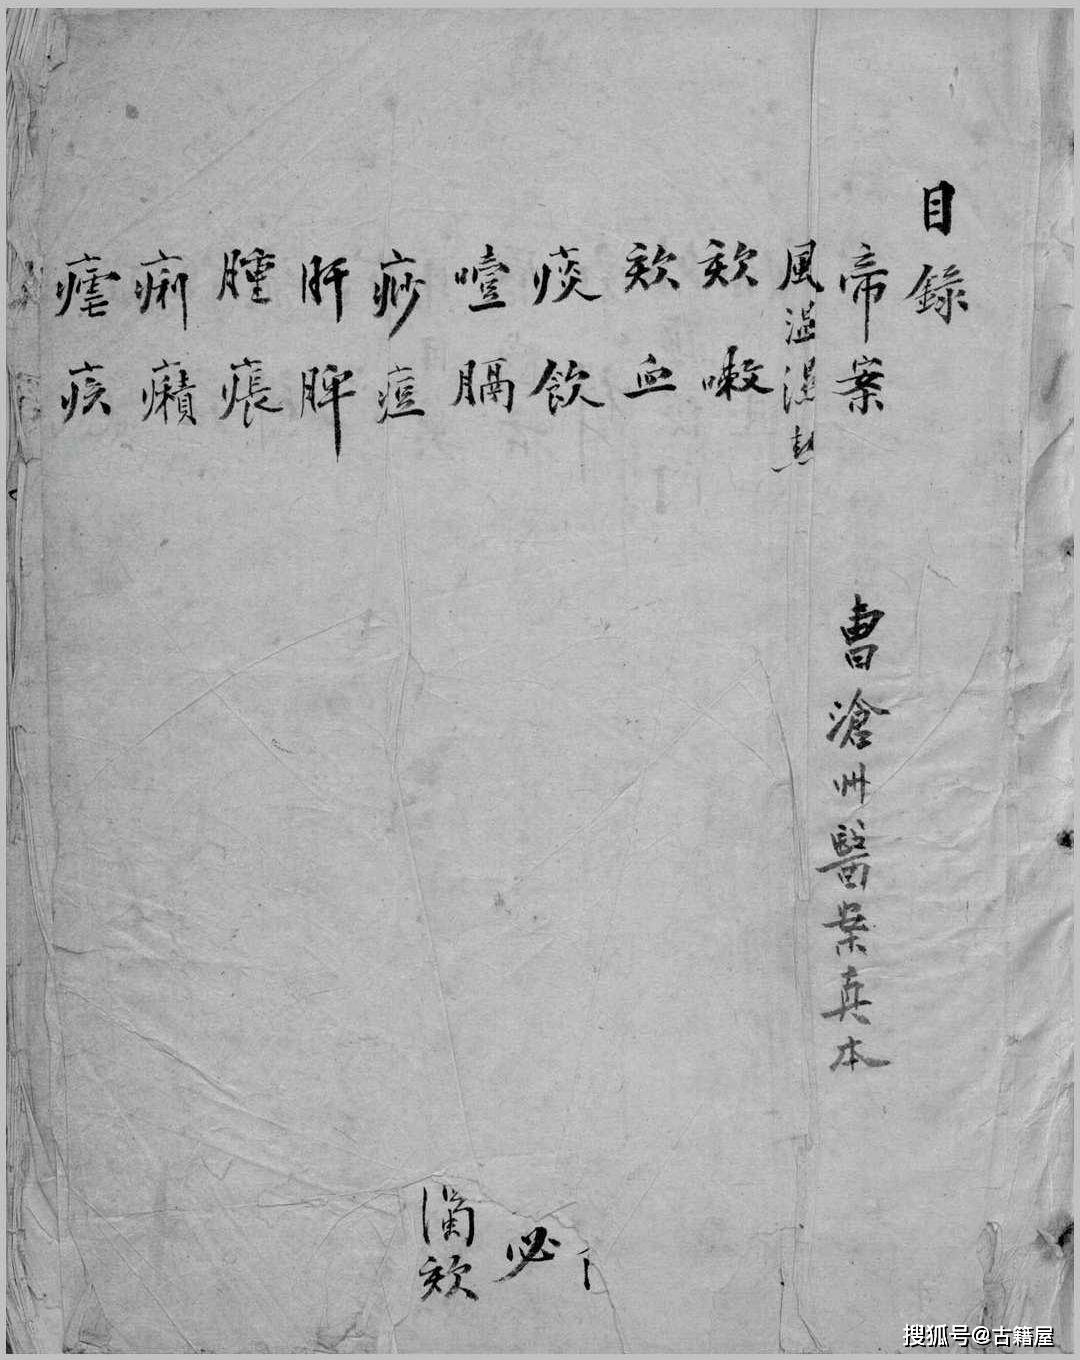 目錄
帝案
曹滄州醫案真本
風溫濕熱
欬嗽
欬血
痰飲
噎膈
痧痘
肝脾
腫脹
痢癪
瘧痎
必
欬
搜狐号@古籍屋